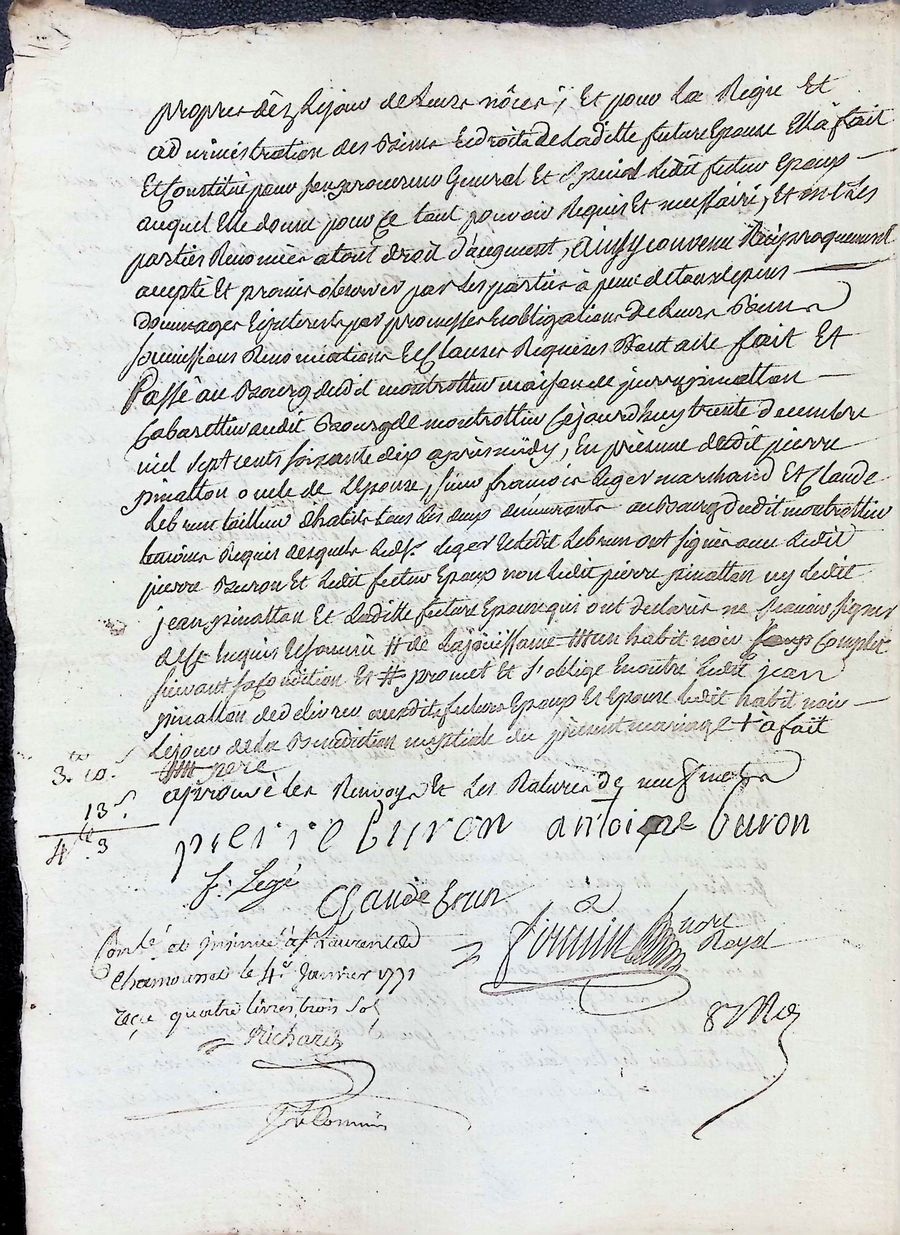 propres dèz le jour de leurs nôces ; Et pour La Regie Et
administration des Biens Et droits de Laditte future Epouse Elle à fait
Et Constitué pour son procureur General Et Special Ledit futur Epoux
auquel Elle donne pour ce tout pouvoir Requis Et necessaire, Et ont les
parties Renoncées a tout droit d'augment, ainsy convenu Reciproquement
acepté Et promis observer par les parties à peine de tous depens
dommages Et interets par promesses Et obligations de leurs Biens
soumissions Renonciations Et Clauses Requises Dont acte fait Et
Passé au Bourg dudit montrottier maison de pierre pinatton
Cabarettier audit Bourg de montrottier Cejourd'huy trente decembre
mil sept cents soixante dix après midy, En presence dudit pierre
pinatton oncle de L'Epouse, sieur françois Leger marchand Et Claude
Lebrun tailleur d'habits tous les deux demeurants au Bourg dudit montrottier
temoins Requis Lesquels Led. sr. Leger Et Ledit Lebrun ont signés avec Ledit
pierre Buron Et Ledit futur Epoux non Ledit pierre pinatton ny Ledit
jean pinatton Et Laditte future Epouse qui ont declarés ne sçavoir signer
de ce Enquis Et sommés # de La jouissance ### un habit noir Complet
suivant sa Condition Et # promet Et s'oblige Encoutre Ledit jean
pinatton de delivrer auxdits futurs Epoux Et Epouse Ledit habit noir
Le jour de La Benediction nuptiale du present mariage + à fait
père
aprouvé Les Renvoys Et Les Ratures de neuf mots
3.# 10.s
13s
4# 3
pierre buron antoine buron
f. Legé
Claude brun
Pomin
nore Royal
Conlé et insinué à St Laurent de
Chamousset le 4e Janvier 1771
reçu quatre livres trois sols
Richard